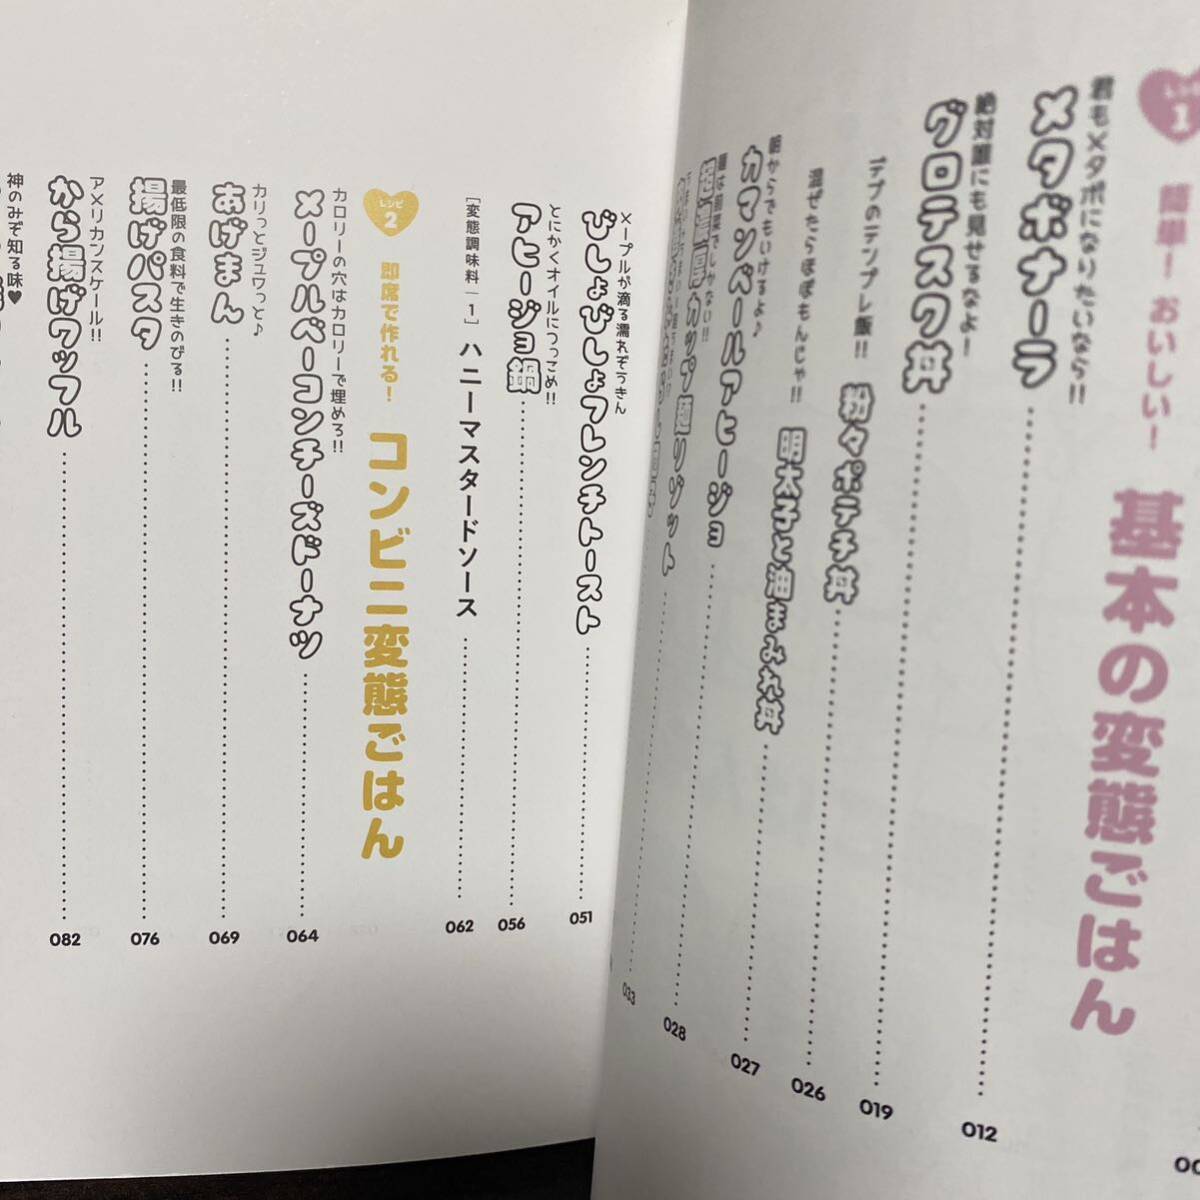 レシピ
1
簡単！おいしい！
基本の変態ごはん
君もメタボになりたいなら!!
メタボナーラ
絶対誰にも見せるなよ！
グロテスク丼
012
デブのテンプレ飯!!
粉々ポテチ丼
019
混ぜたらほぼもんじゃ!!
明太子と油まみれ丼
026
朝からでもいけるよ♪
カマンベールアヒージョ
027
麺は前菜でしかない!!
超濃厚カップ麺リゾット
028
033
メープルが滴る濡れぞうきん
びしょびしょフレンチトースト
051
とにかくオイルにつっこめ!!
アヒージョ鍋
056
［変態調味料｜1］ハニーマスタードソース
062
レシピ
2
即席で作れる！
コンビニ変態ごはん
カロリーの穴はカロリーで埋めろ!!
メープルベーコンチーズドーナツ
064
カリっとジュワっと♪
あげまん
069
最低限の食料で生きのびる!!
揚げパスタ
076
アメリカンスケール!!
から揚げワッフル
082
神のみぞ知る味♥